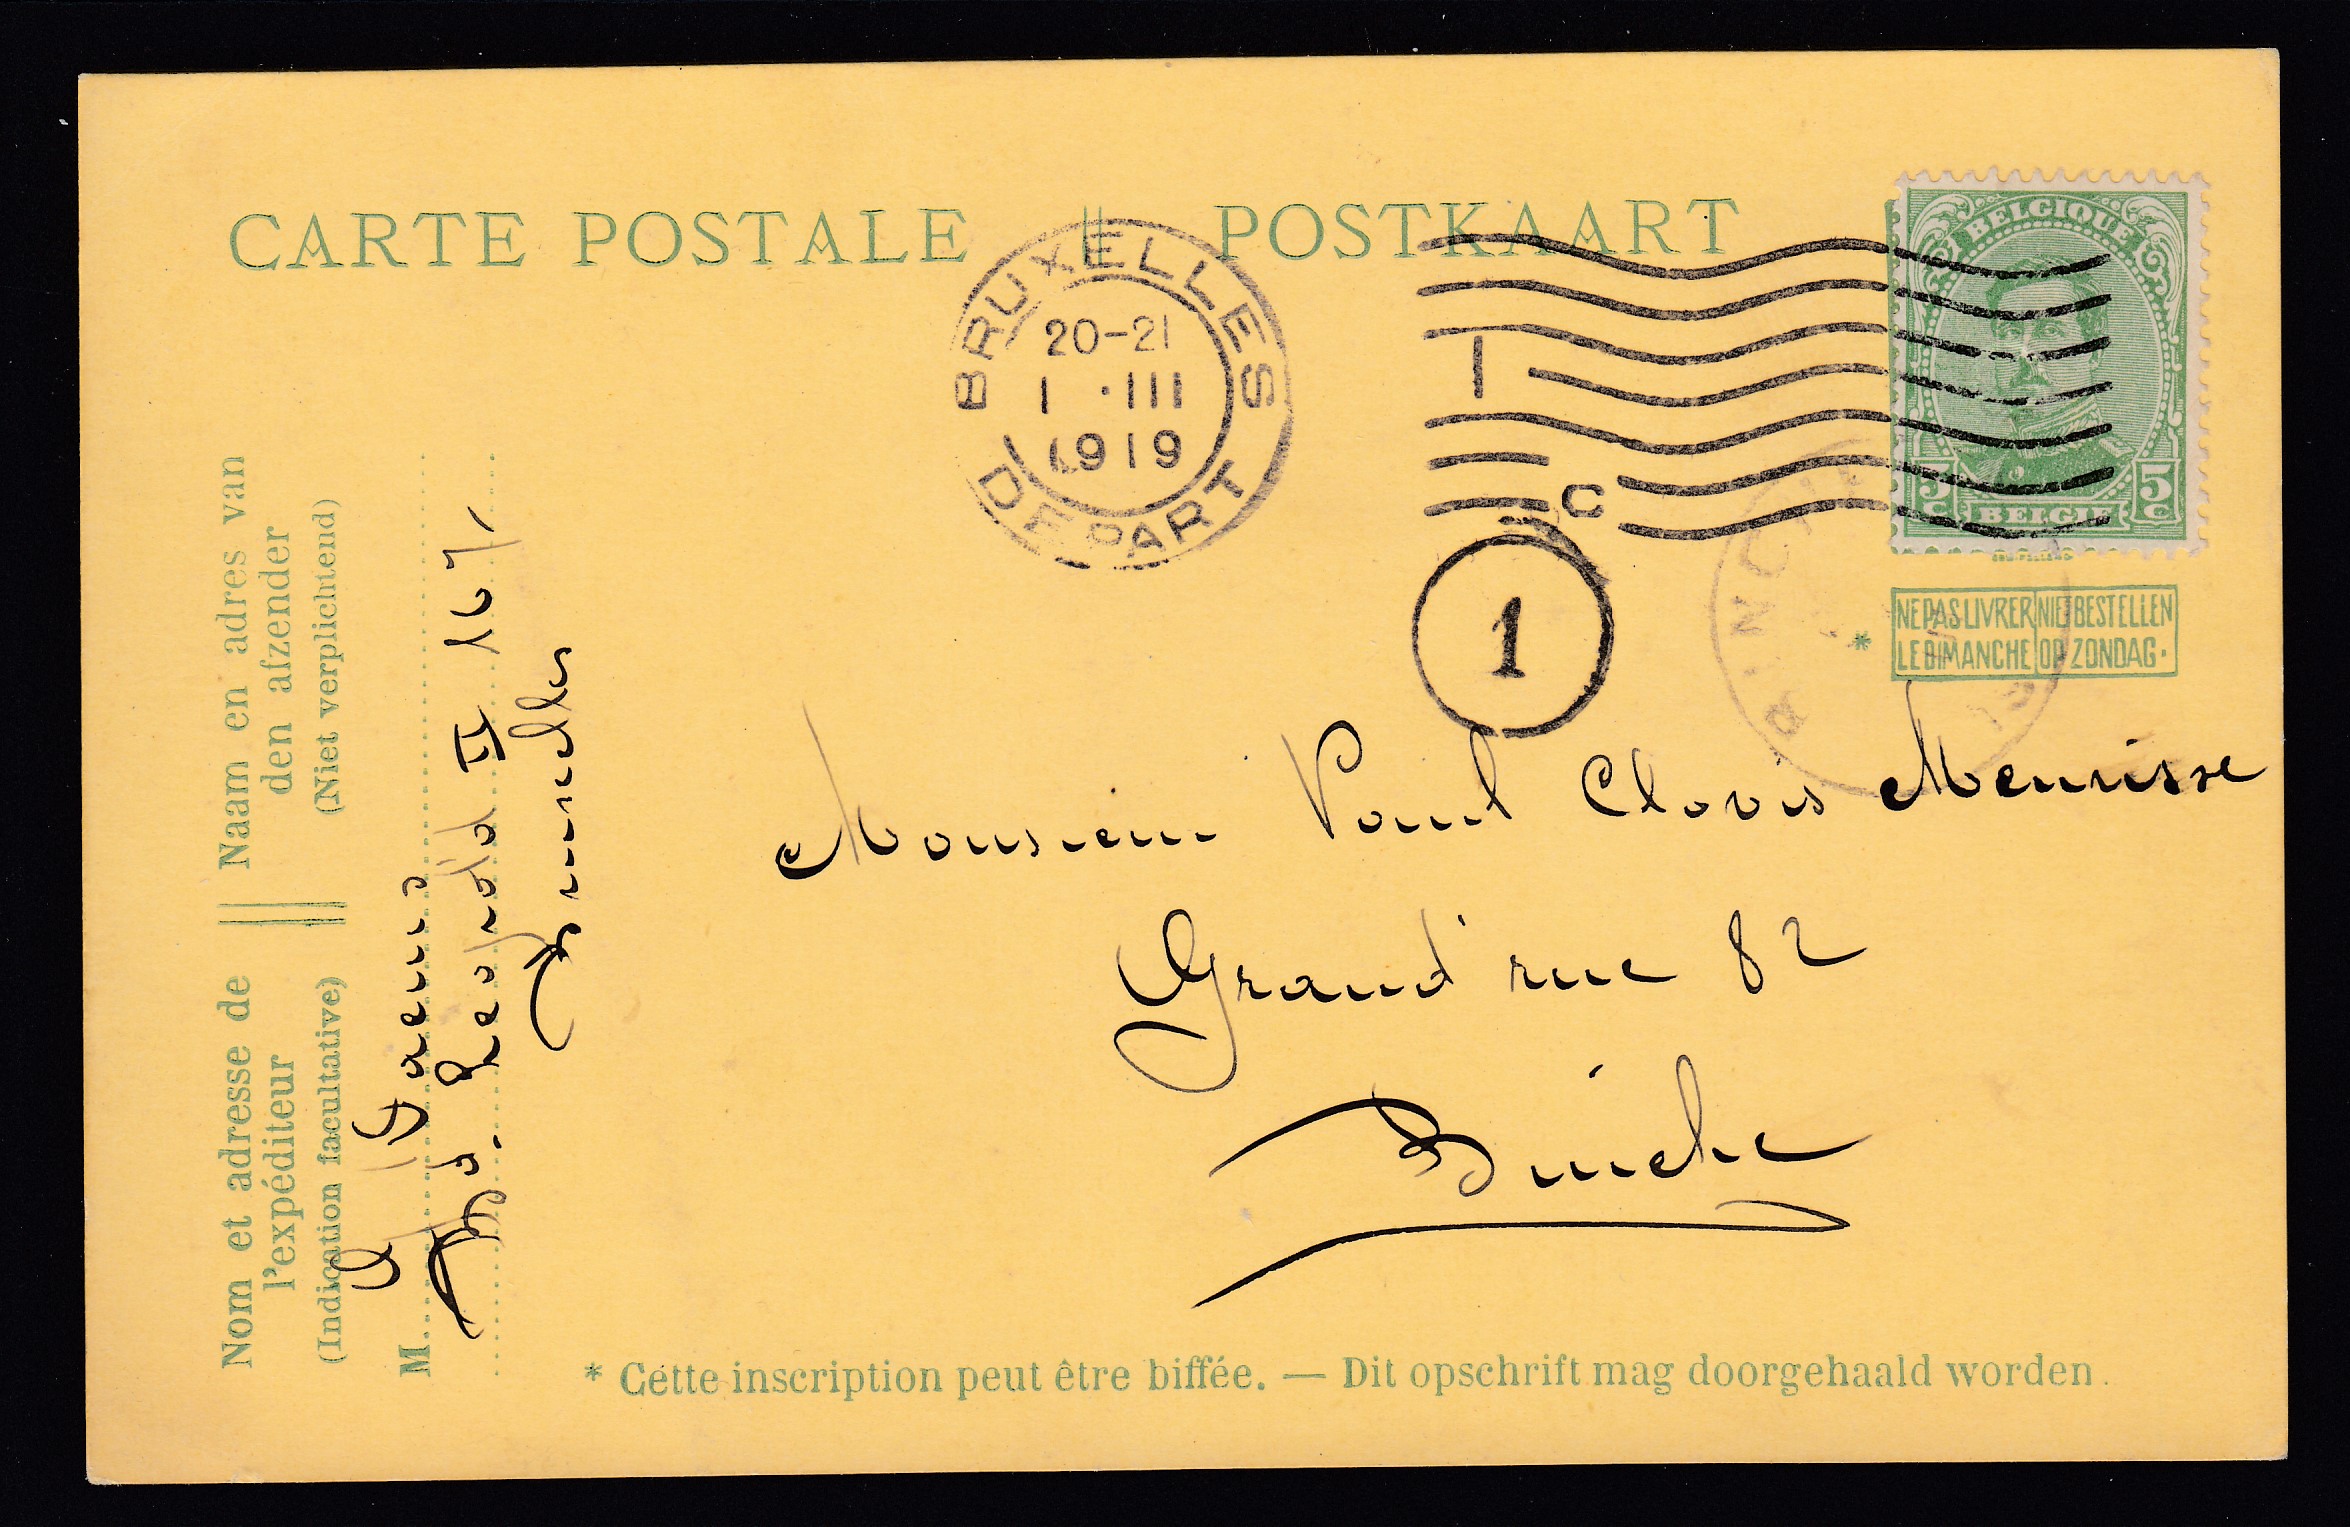 CARTE POSTALE || POSTKAART
BELGIQUE
5c 5c
BELGIE
BRUXELLES
20-21
1 · III
1919
DEPART
1 C
1
BINCHE
NE PAS LIVRER LE DIMANCHE
NIET BESTELLEN OP ZONDAG.
*
Monsieur Paul Clovis Meurisse
Grand'rue 82
Binche
Nom et adresse de l'expéditeur
(Indication facultative)
Naam en adres van den afzender
(Niet verplichtend)
M.
Bd. Léopold II 167,
Bruxelles
* Cette inscription peut être biffée. — Dit opschrift mag doorgehaald worden.